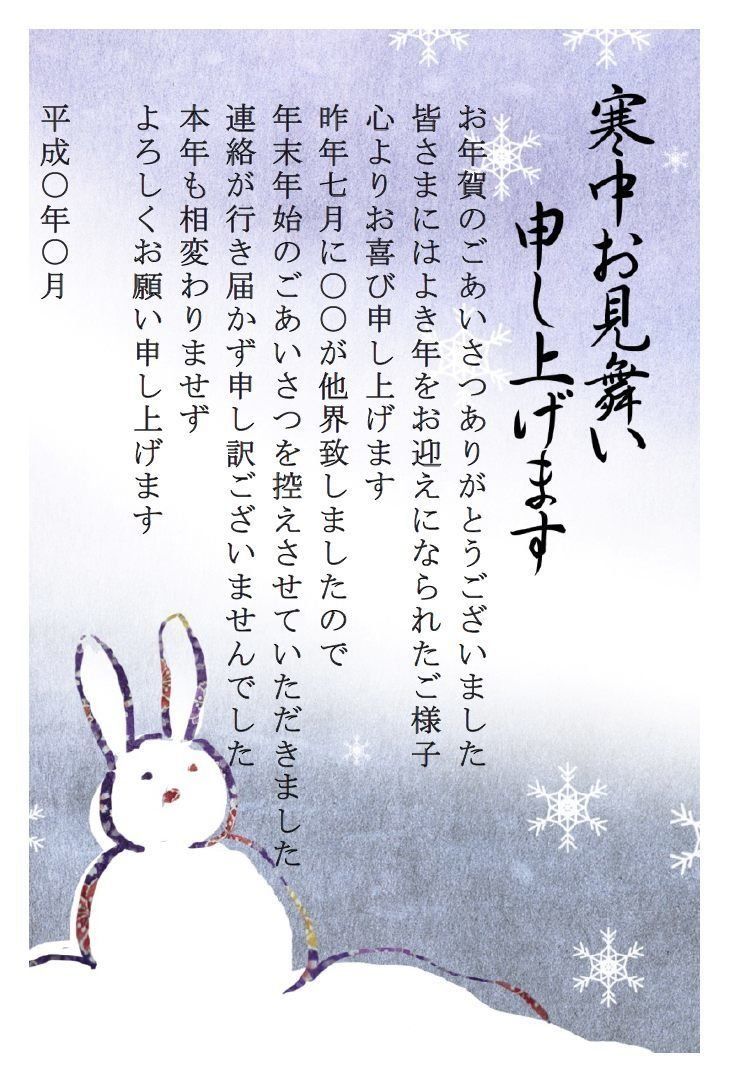 寒中お見舞い
申し上げます
お年賀のごあいさつありがとうございました
皆さまにはよき年をお迎えになられたご様子
心よりお喜び申し上げます
昨年七月に〇〇が他界致しましたので
年末年始のごあいさつを控えさせていただきました
連絡が行き届かず申し訳ございませんでした
本年も相変わりませず
よろしくお願い申し上げます
平成〇年〇月